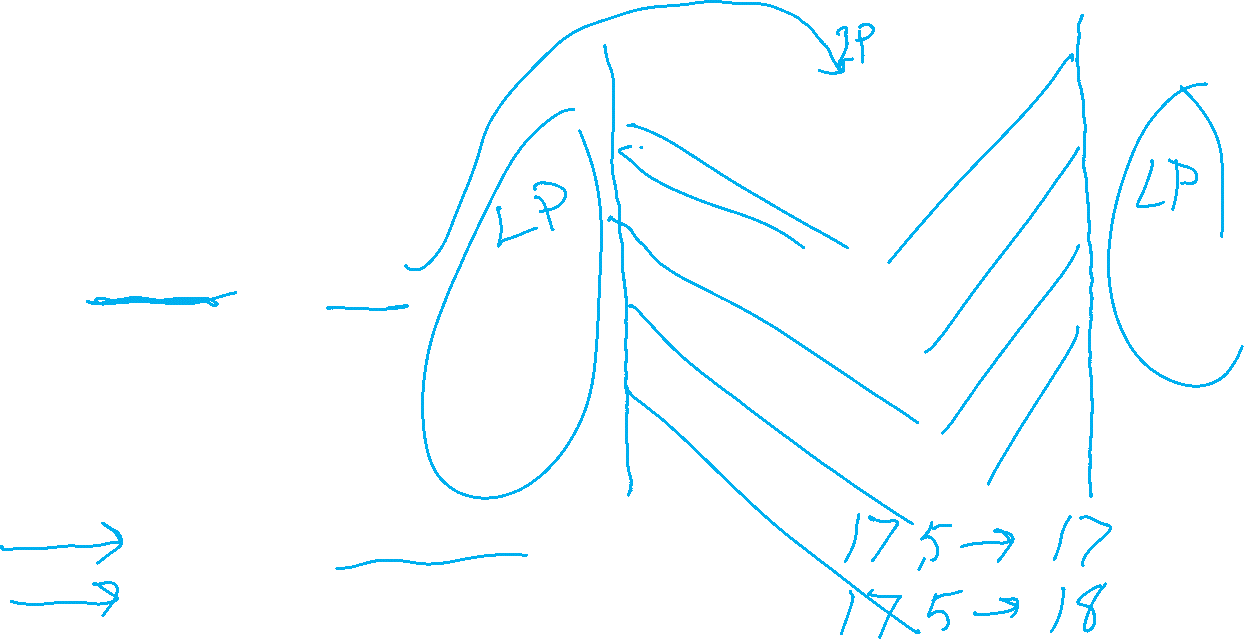 LP
LP
LP
17,5 → 17
17,5 → 18